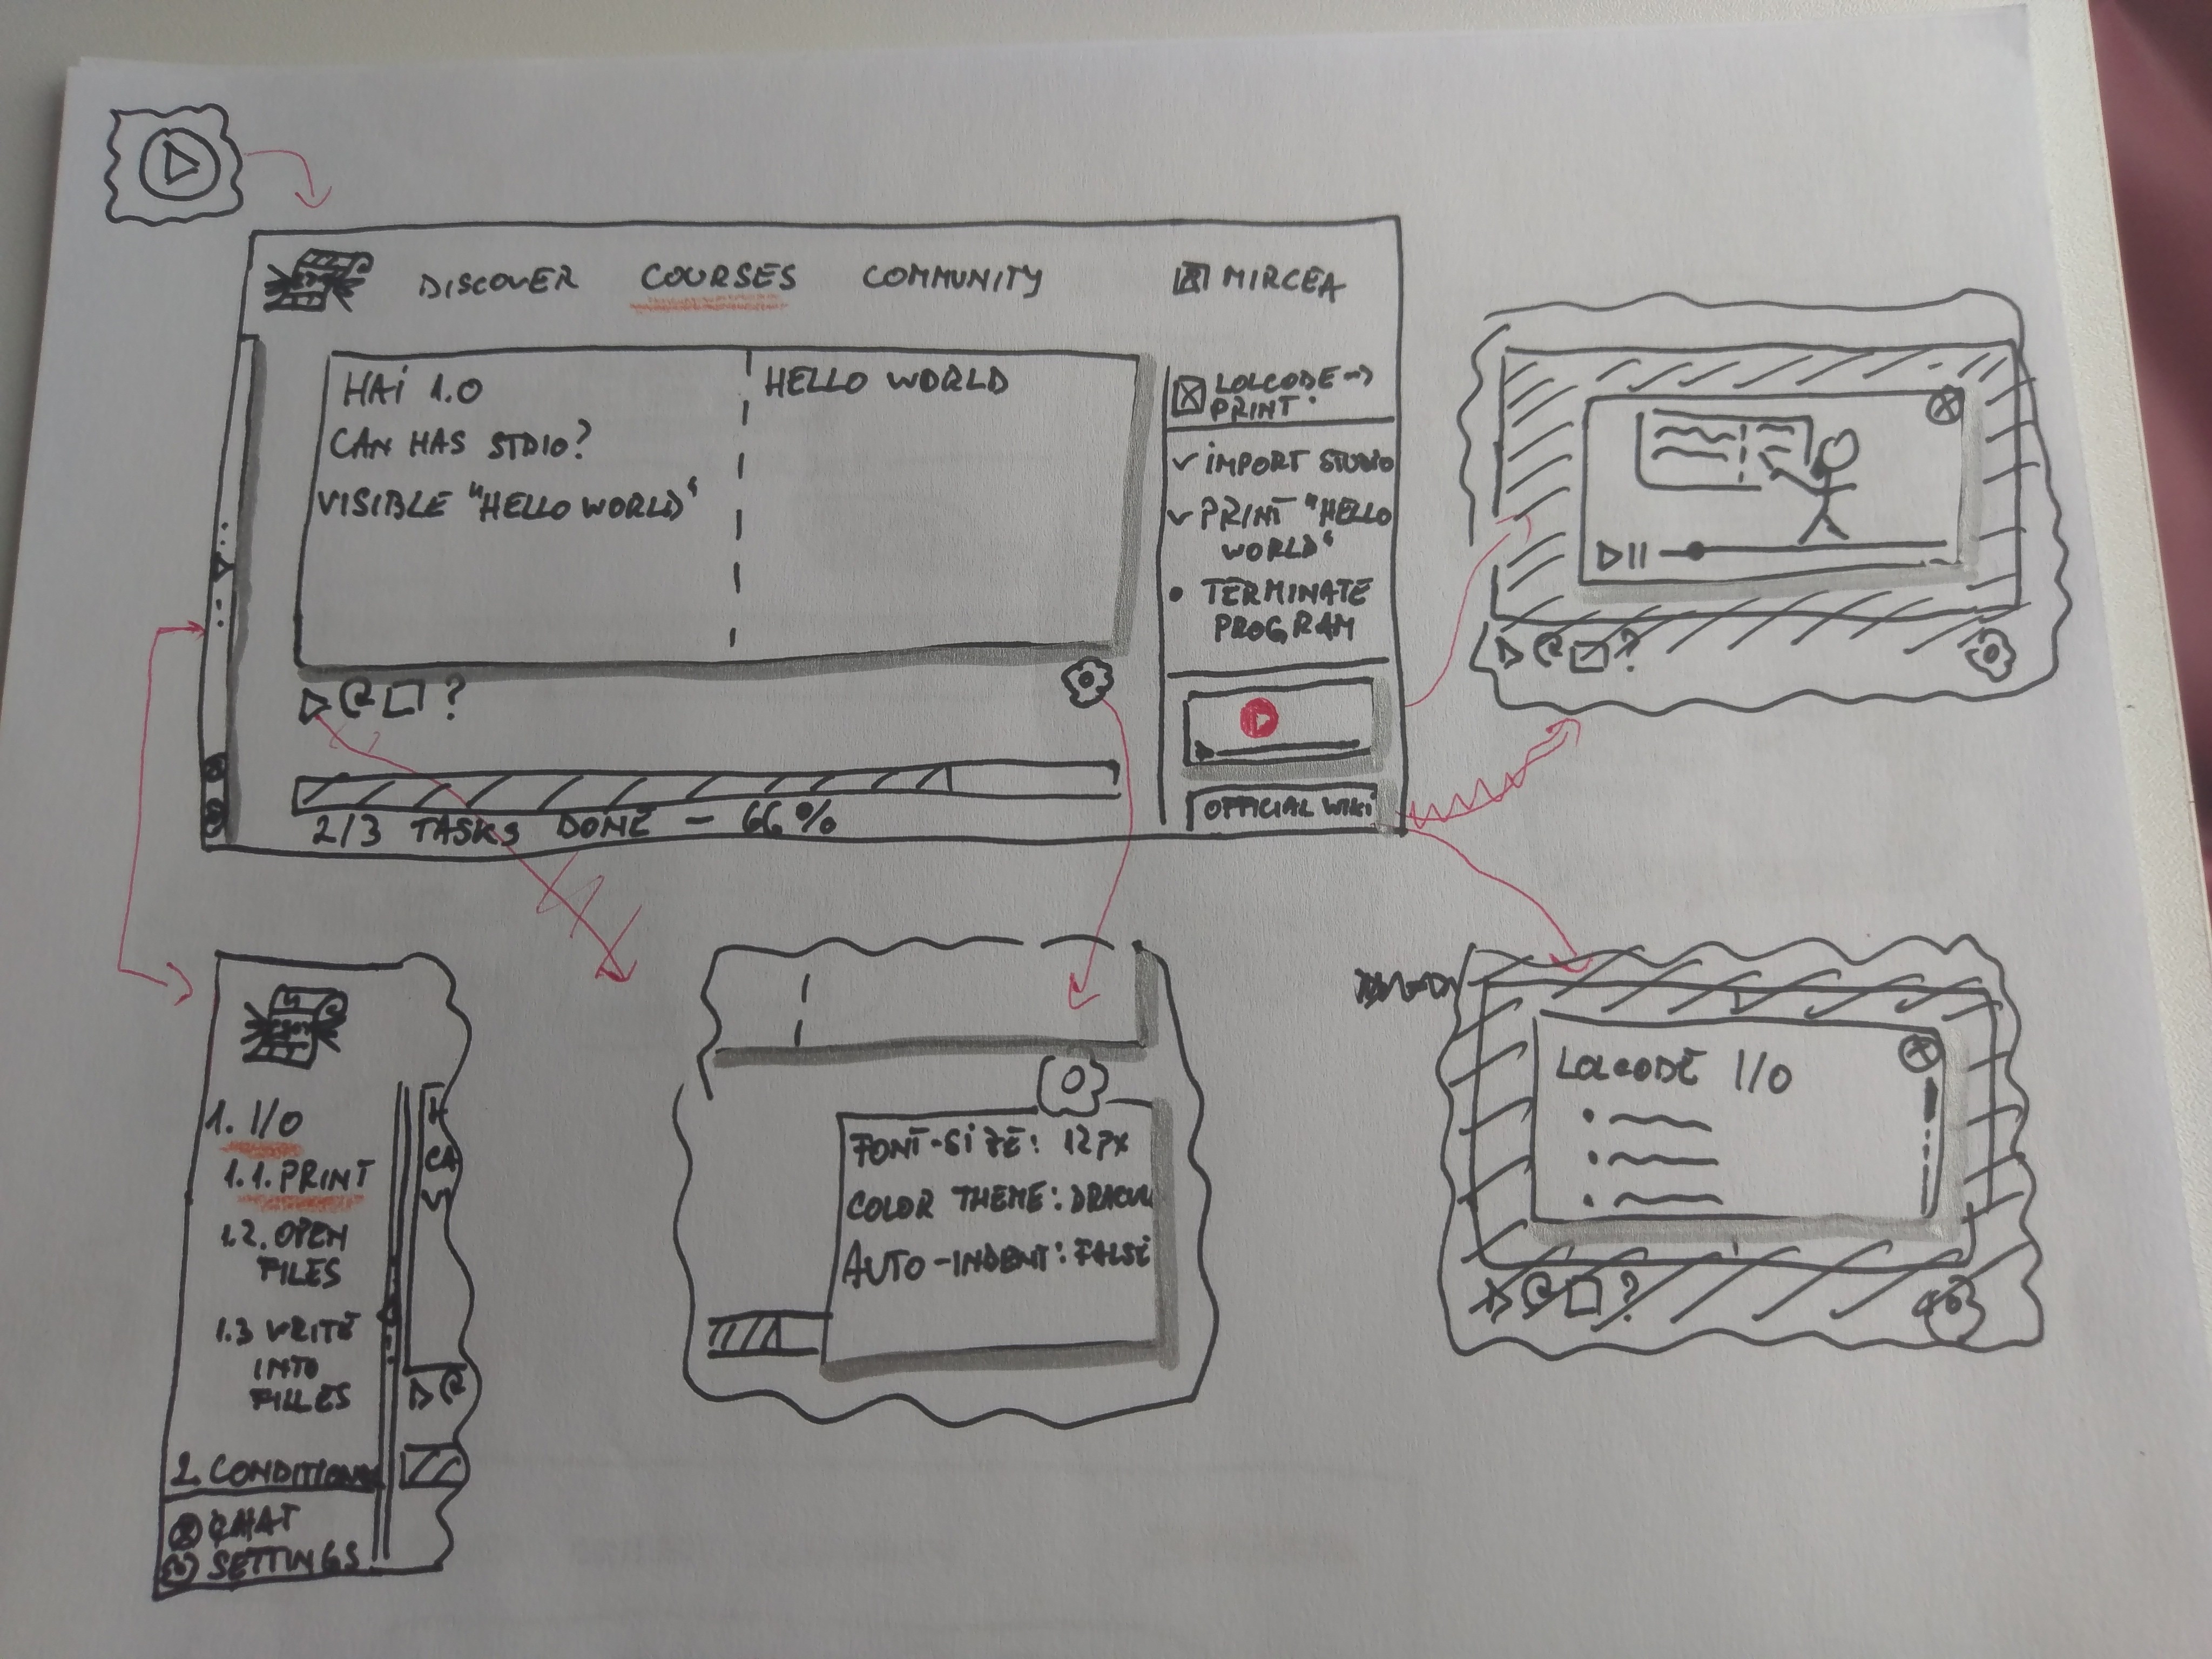 DISCOVER COURSES COMMUNITY MIRCEA
HAI 1.0
CAN HAS STDIO?
VISIBLE "HELLO WORLD"
HELLO WORLD
LOLCODE →
PRINT
IMPORT STUDIO
PRINT "HELLO
WORLD"
TERMINATE
PROGRAM
?
OFFICIAL WIKI
2/3 TASKS DONE - 66%
?
1. I/O
1.1. PRINT
1.2. OPEN
FILES
1.3 WRITE
INTO
FILLES
2. CONDITIONS
CHAT
SETTINGS
H
CA
V
FONT-SIZE: 12PX
COLOR THEME: DRACU
AUTO-INDENT: FALSE
LOLCODE I/O
?